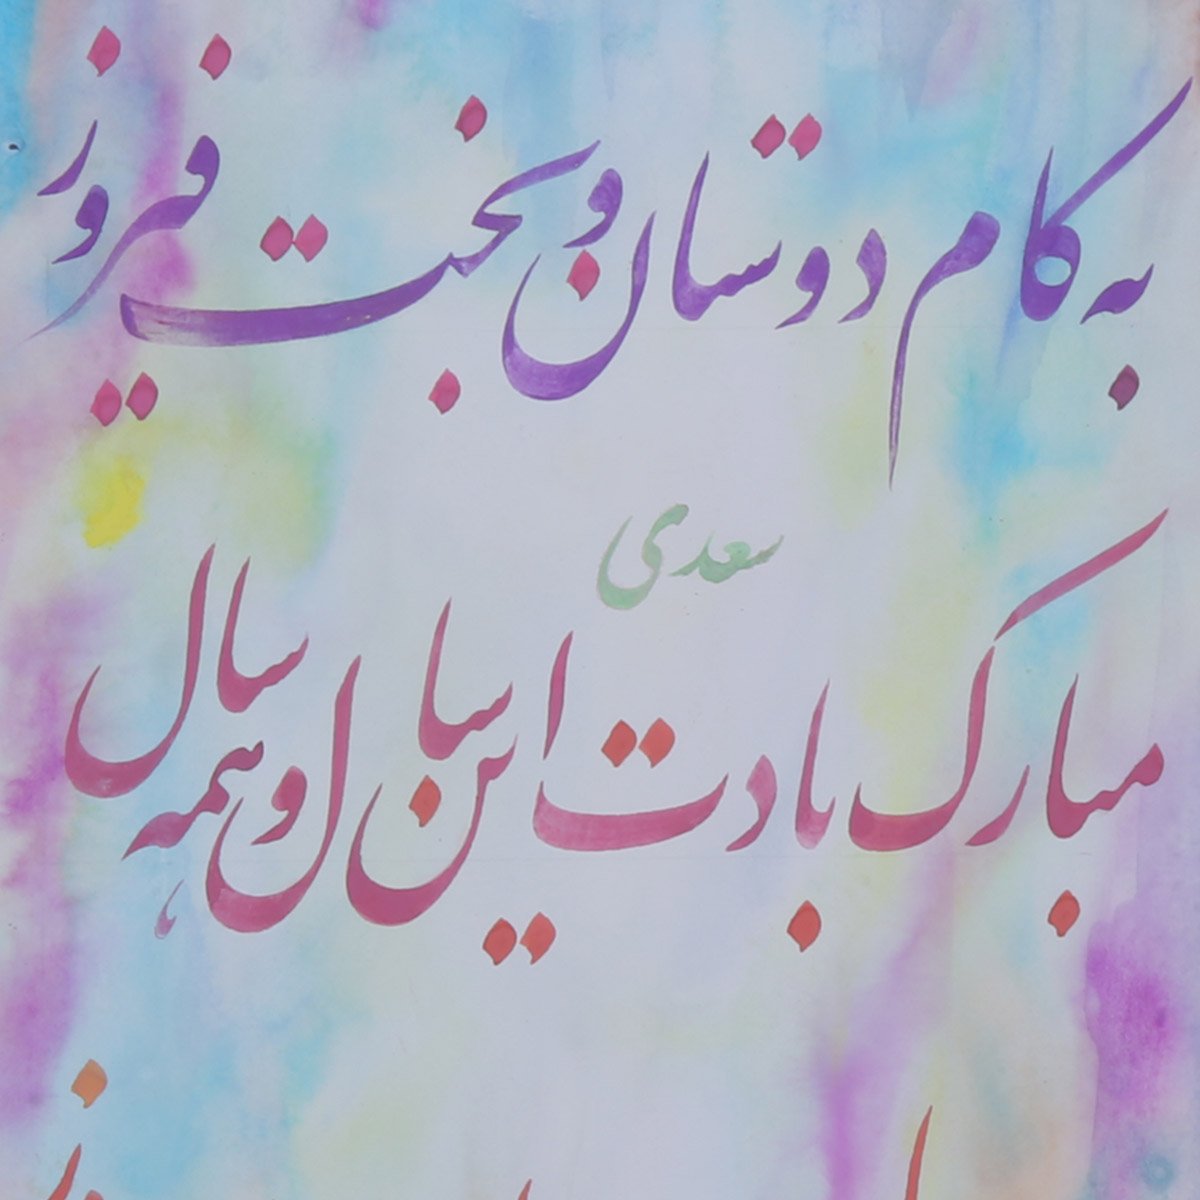 به کام دوستان و بخت فیروز
سعدی
مبارک بادت این سال و همه سال